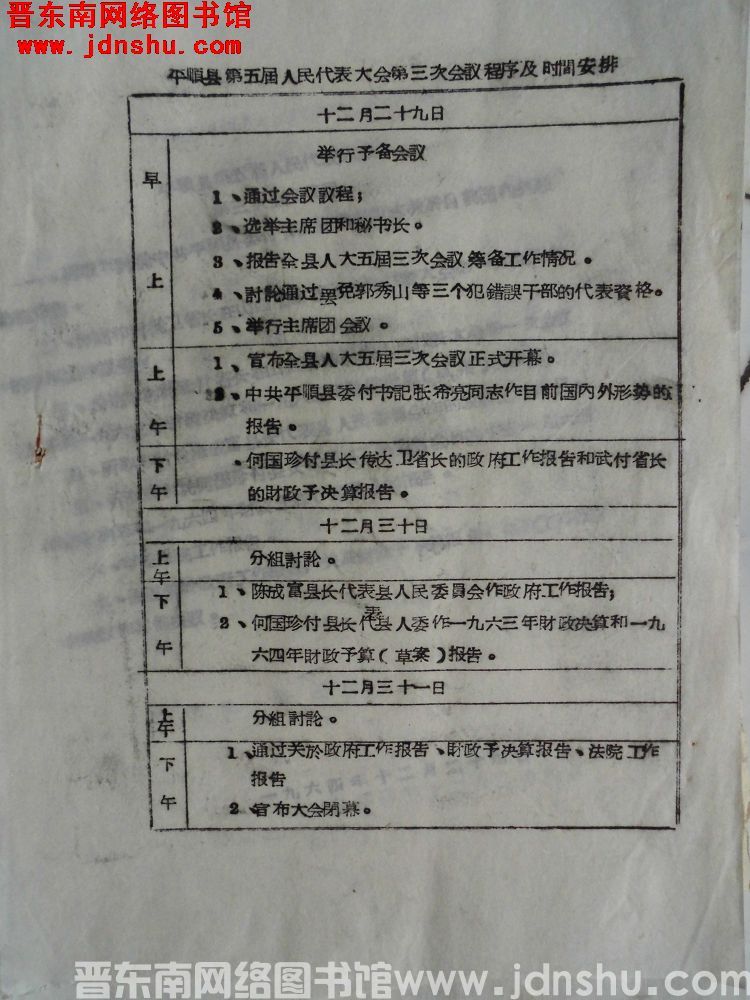 晋东南网络图书馆
www.jdnshu.com
平順县第五届人民代表大会第三次会議程序及时間安排
十二月二十九日
早上
举行予备会議
1、通过会議議程；
2、选举主席团和秘书长。
3、报告全县人大五届三次会議筹备工作情况。
4、討論通过罢免郭秀山等三个犯錯誤干部的代表資格。
5、举行主席团会議。
上午
1、宣布全县人大五届三次会議正式开幕。
2、中共平順县委付书記张希亮同志作目前国內外形势的
报告。
下午
何国珍付县长传达卫省长的政府工作报告和武付省长
的財政予决算报告。
十二月三十日
上午
分組討論。
下午
1、陈成富县长代表县人民委員会作政府工作报告；
2、何国珍付县长代表县人委作一九六三年財政决算和一九
六四年財政予算（草案）报告。
十二月三十一日
上午
分組討論。
下午
1、通过关於政府工作报告、財政予决算报告、法院工作
报告
2、宣布大会閉幕。
晋东南网络图书馆www.jdnshu.com